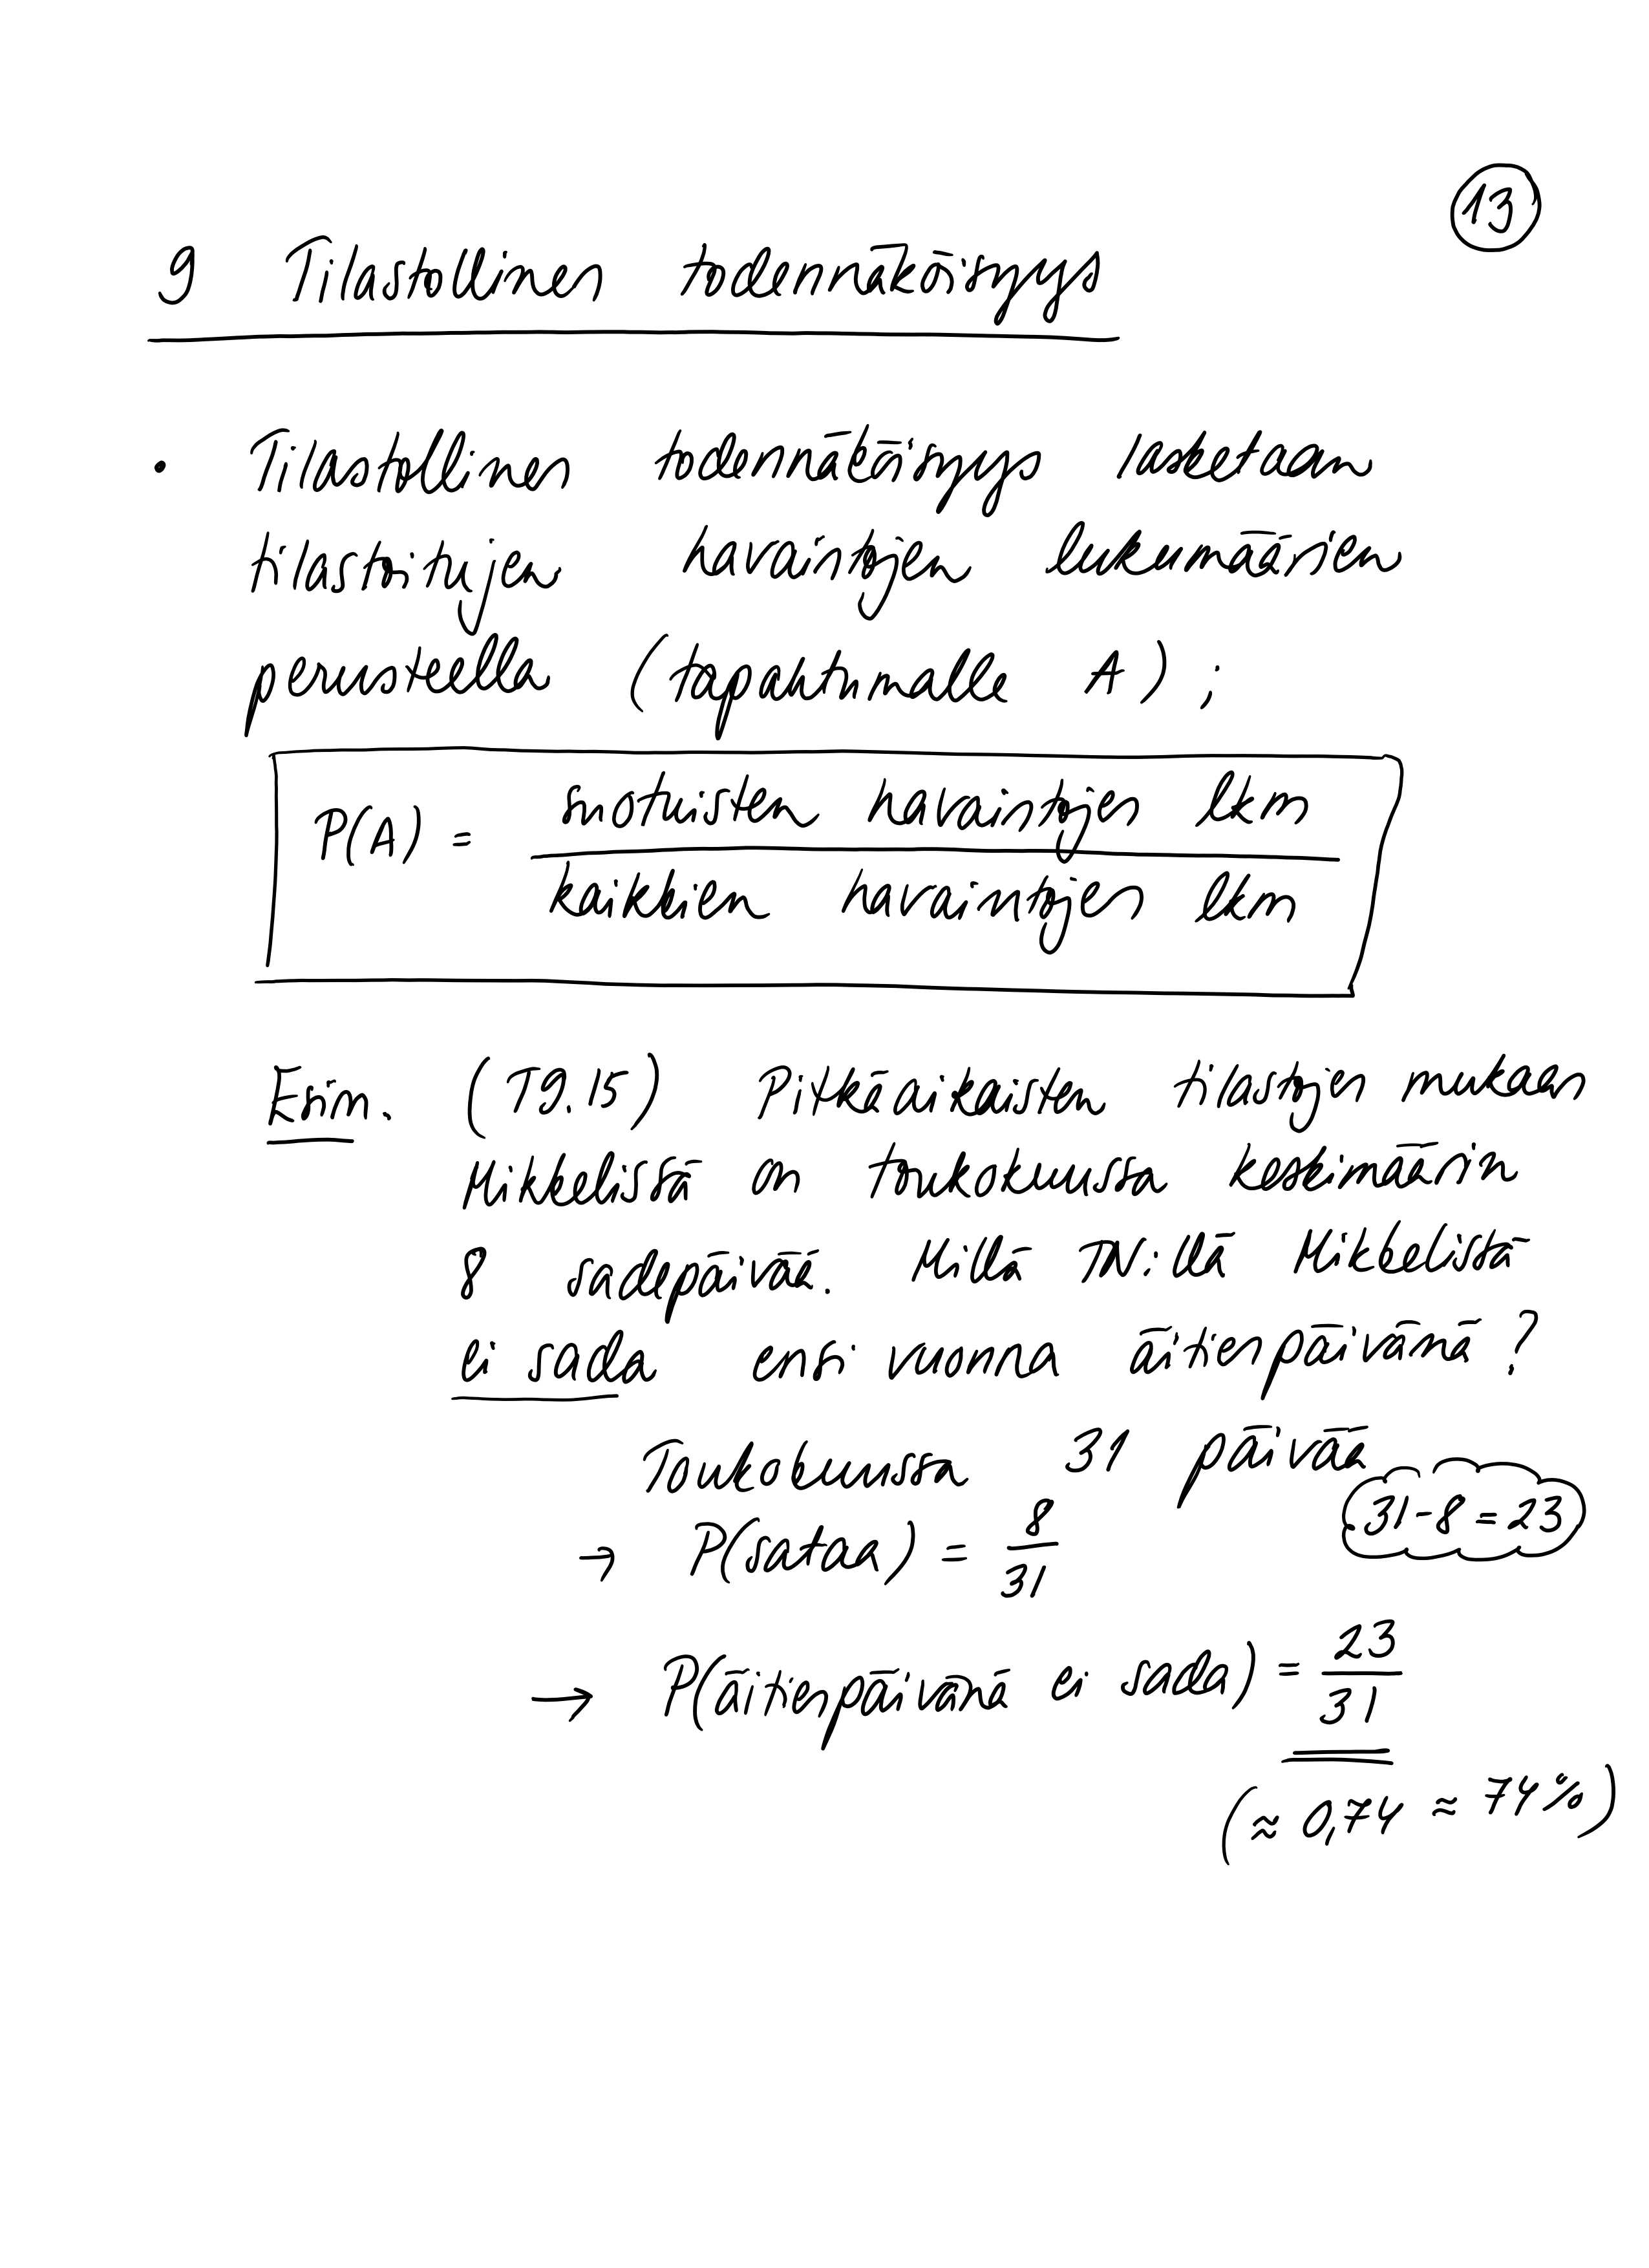 13
9 Tilastollinen todennäköisyys
• Tilastollinen todennäköisyys lasketaan
tilastoitujen havaintojen lukumäärien
perusteella (tapahtumalle A) ;
P(A) = suotuisten havaintojen lkm / kaikkien havaintojen lkm
Esim. (T9.15) Pitkäaikaisten tilastojen mukaan
Mikkelissä on toukokuussa keskimäärin
8 sadepäivää. Millä TN:llä Mikkelissä
ei sada ensi vuonna äitienpäivänä ?
Toukokuussa 31 päivää
31 - 8 = 23
→ P(sataa) = 8/31
→ P(äitienpäivänä ei sada) = 23/31
(≈ 0,74 ≈ 74%)